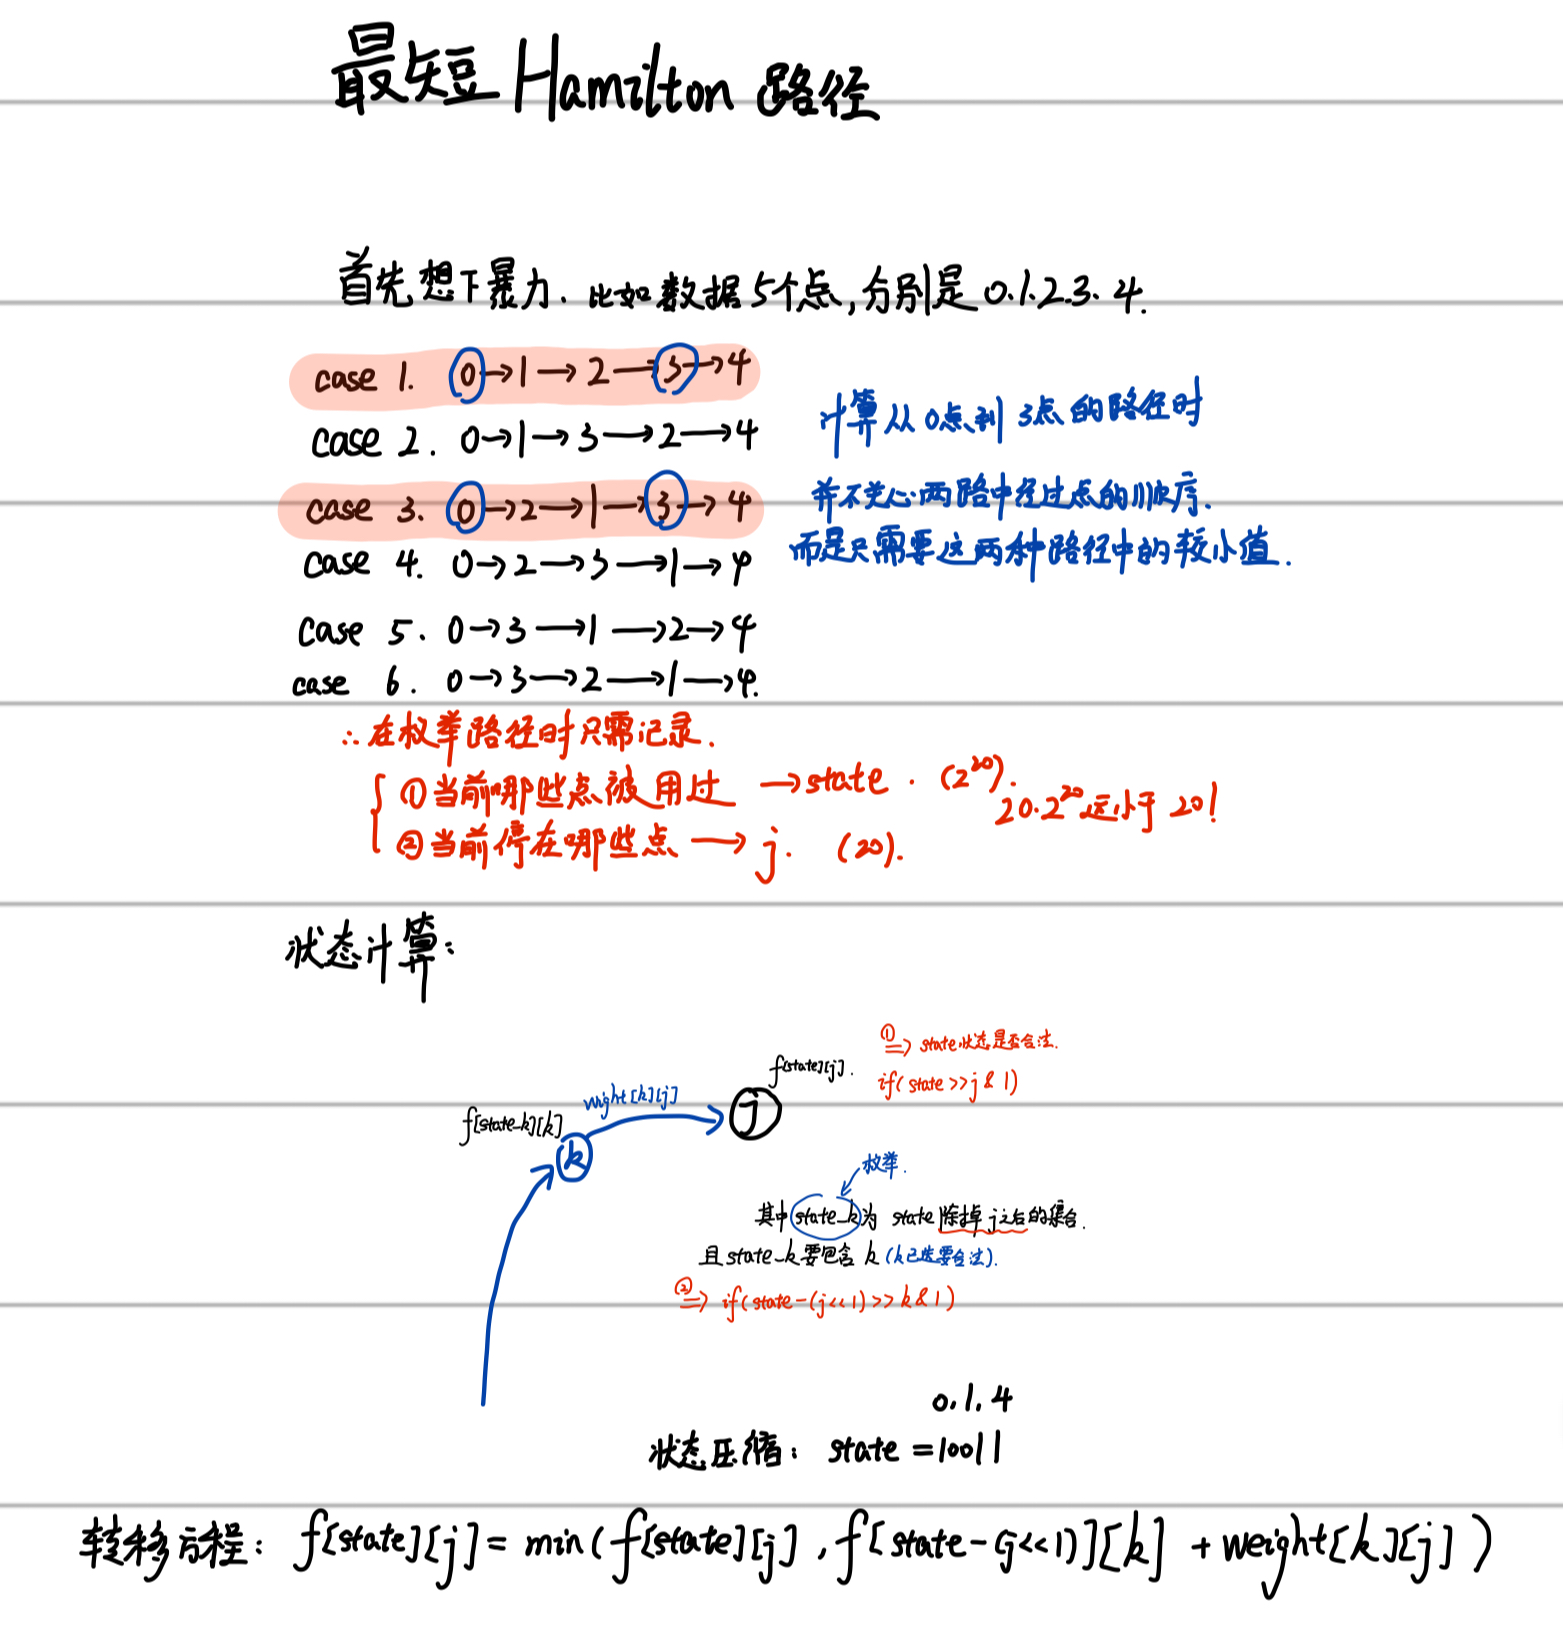 最短 Hamilton 路径
首先想下暴力. 比如数据5个点,分别是0.1.2.3.4.
case 1. 0→1→2→3→4
case 2. 0→1→3→2→4
case 3. 0→2→1→3→4
case 4. 0→2→3→1→4
case 5. 0→3→1→2→4
case 6. 0→3→2→1→4.
计算从0点到3点的路径时
并不关心两路中经过点的顺序.
而是只需要这两种路径中的较小值.
∴在枚举路径时只需记录.
①当前哪些点被用过 →state. (2^20).
②当前停在哪些点 → j. (20).
20·2^20远小于 20!
状态计算:
f[state][j].
①=> state状态是否合法.
if(state>>j&1)
f[state_k][k]
weight[k][j]
j
k
枚举.
其中state_k为 state除掉j之后的集合.
且state_k要包含 k (k已选要合法).
②=> if(state-(j<<1)>>k&1)
0.1.4
状态压缩: state=10011
转移方程: f[state][j]=min(f[state][j],f[state-(j<<1)][k]+weight[k][j])